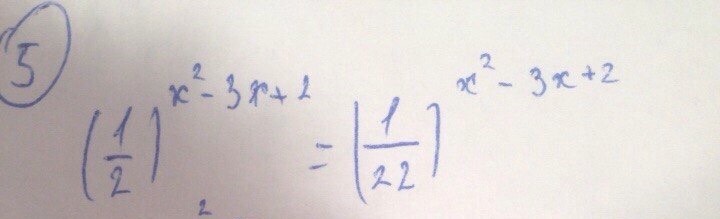 5
(1/2)^(x²-3x+2) = (1/22)^(x²-3x+2)
2